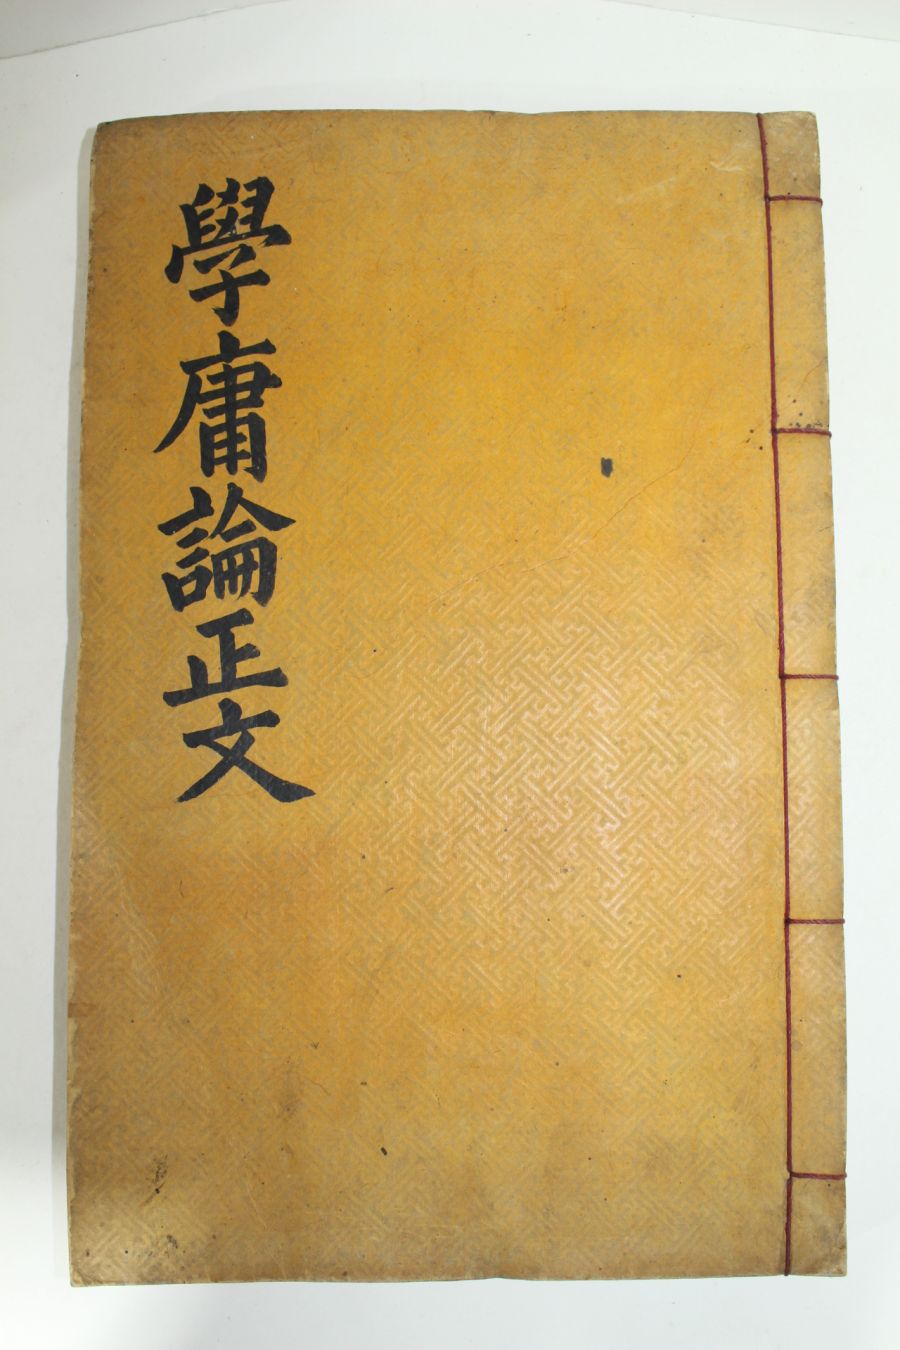 學庸論正文